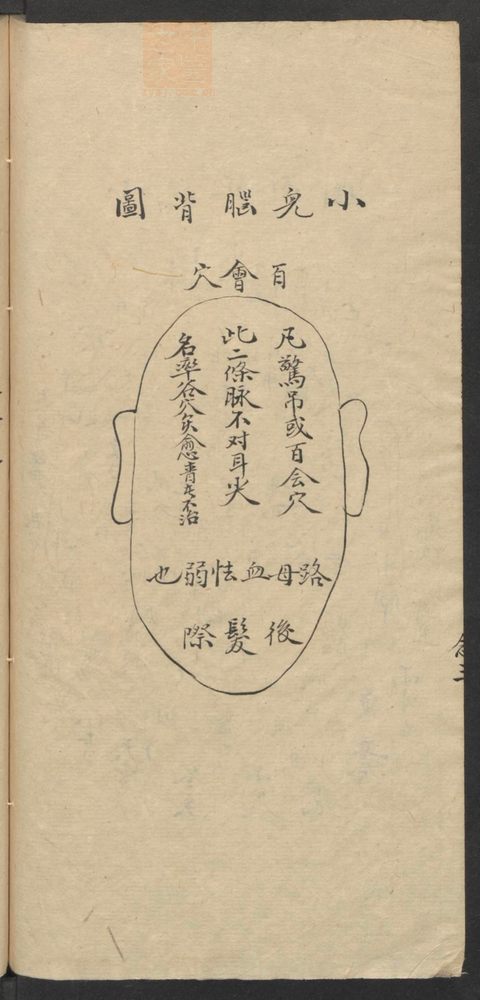 小兒腦背圖
百會穴
凡驚吊或百会穴
此二條脉不对耳尖
名率谷穴灸愈青者不治
路母血怯弱也
後髮際